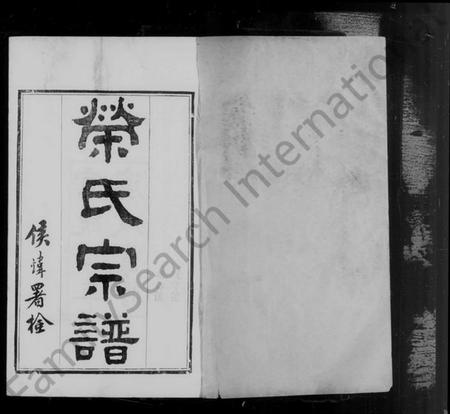 榮氏宗譜
侯煒署檢
FamilySearch International